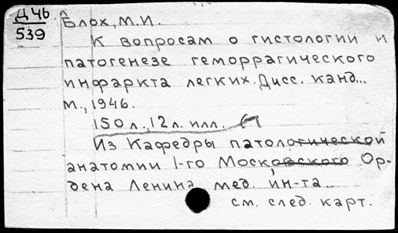 Д 46
539
Блох, М.И.
К вопросам о гистологии и
патогенезе геморрагического
инфаркта легких. Дисс. канд...
М., 1946.
150 л., 12 л. илл.
Из Кафедры патологической
анатомии 1-го Московского Ор-
дена Ленина мед. ин-та
см. след. карт.